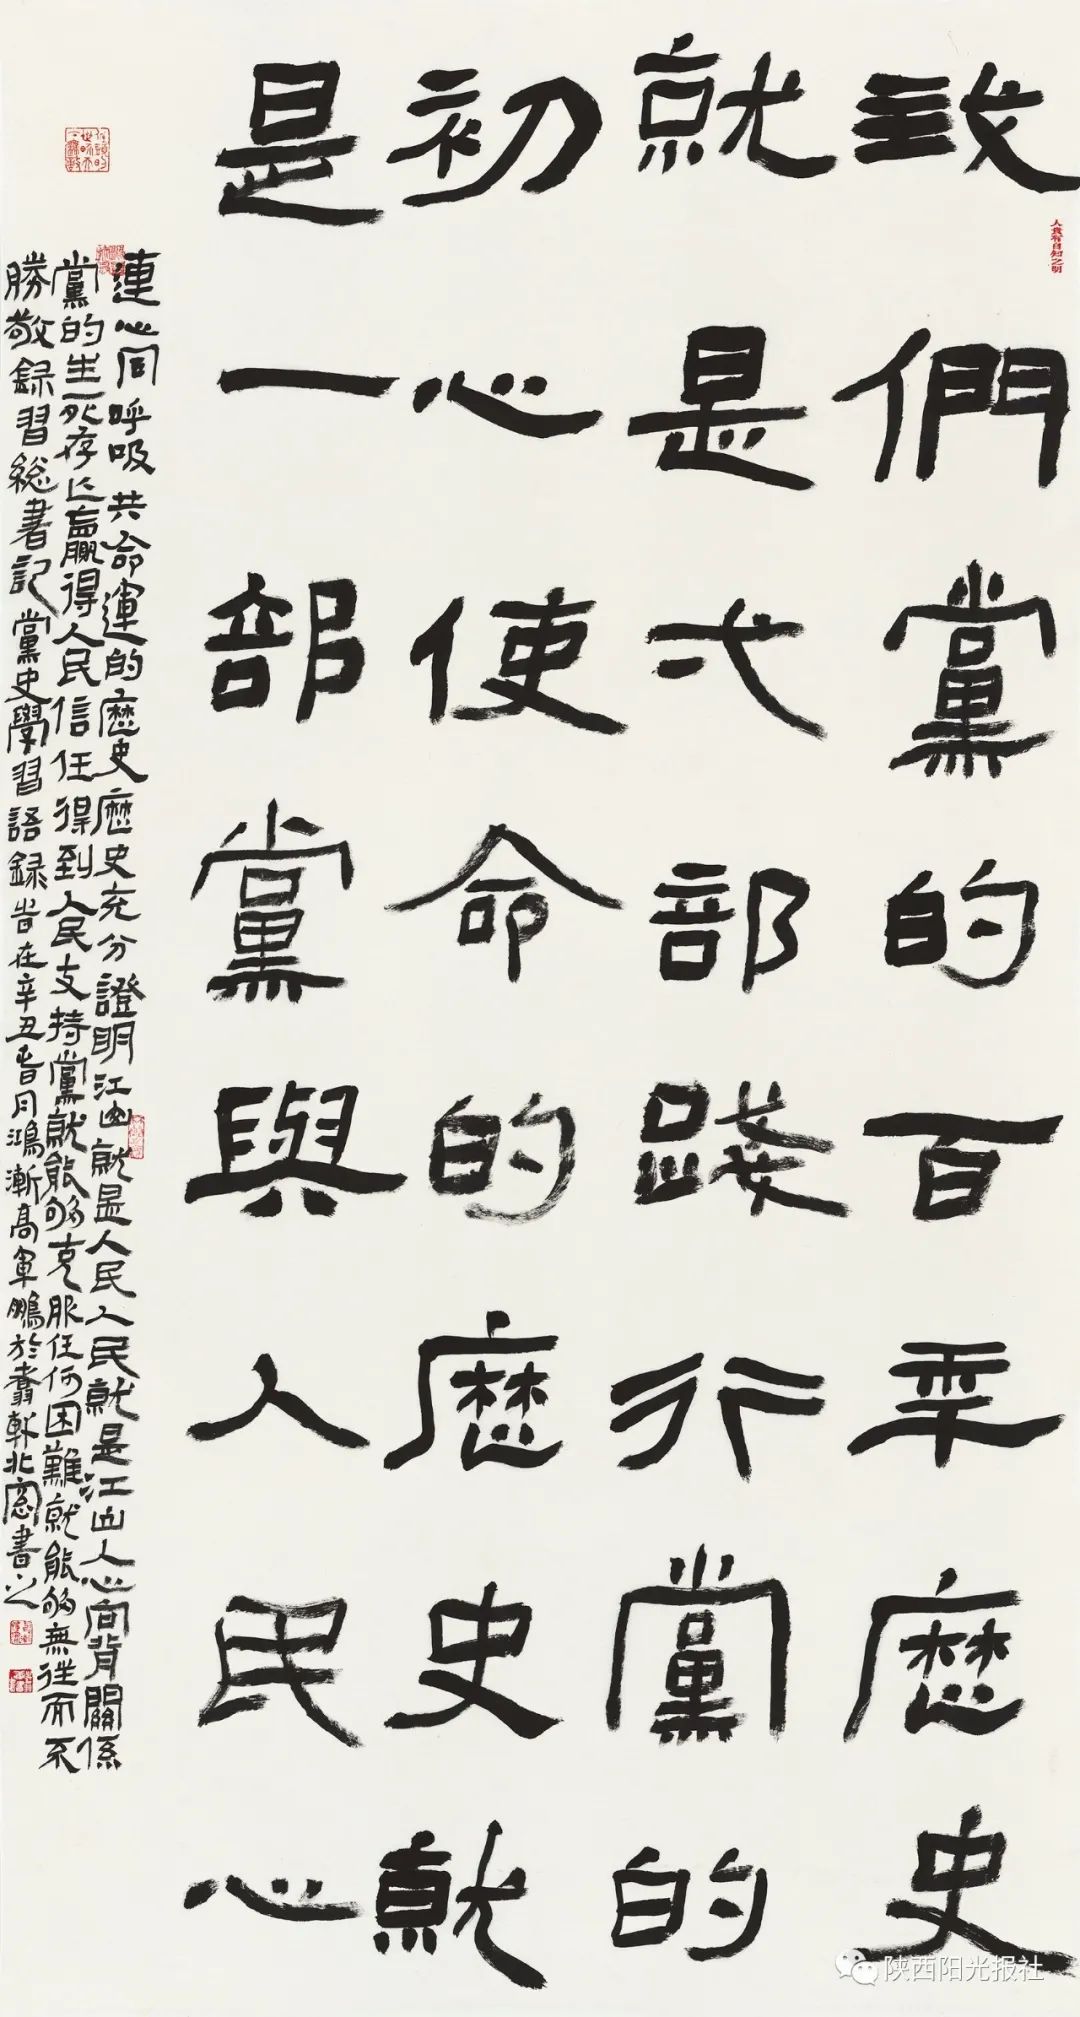 我們黨的百年歷史
就是弌部踐行黨的
初心使命的歷史就
是一部黨與人民心
連心同呼吸共命運的歷史歷史充分證明江山就是人民人民就是江山人心向背關係
黨的生死存亡贏得人民信任得到人民支持黨就能夠克服任何困難就能夠無往而不
勝敬録習総書記黨史學習語録時在辛丑春月鴻漸高軍鵬於翥軒北窓書之
人貴有自知之明
陕西阳光报社